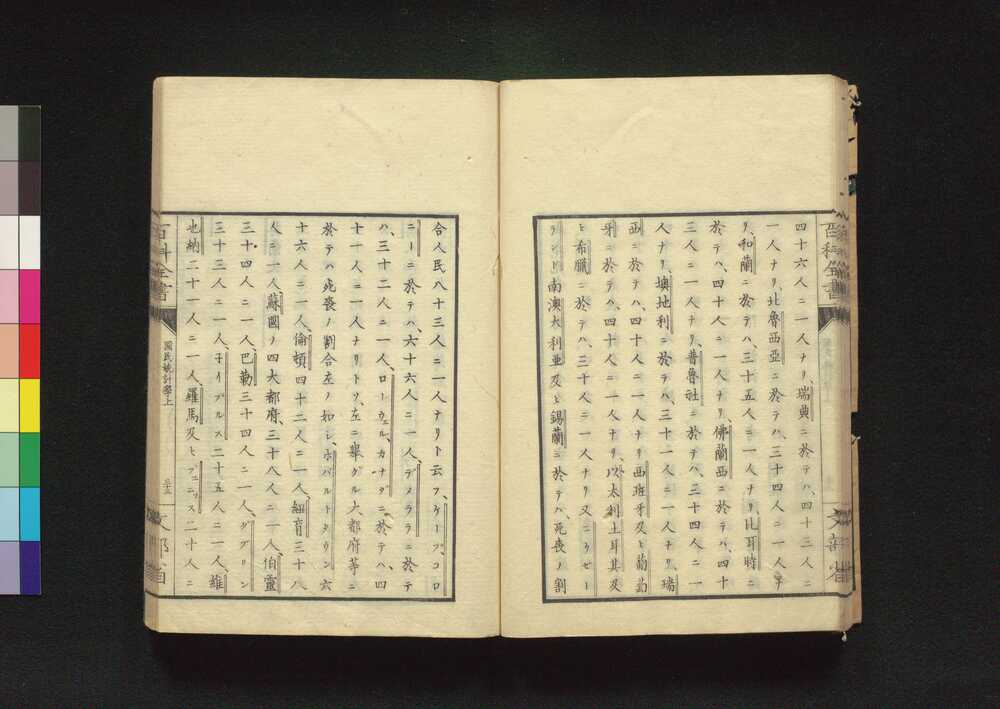 四十六人ニ一人ナリ、瑞典ニ於テハ、四十三人ニ
一人ナリ、北魯西亞ニ於テハ、三十四人ニ一人ナ
リ、和蘭ニ於テハ、三十五人ニ一人ナリ、比耳時ニ
於テハ、四十人ニ一人ナリ、佛蘭西ニ於テハ、四十
三人ニ一人ナリ、普魯社ニ於テハ、三十四人ニ一
人ナリ、墺地利ニ於テハ、三十一人ニ一人ナリ、瑞
西ニ於テハ四十人ニ一人ナリ、西班牙及ヒ葡萄
牙ニ於テハ、四十人ニ一人ナリ、以太利土耳其及
ヒ希臘ニ於テハ、三十人ニ一人ナリ、又ニウゼー
ランド南澳大利亜及ヒ錫蘭ニ於テハ、死喪ノ割
合人民八十三人ニ一人ナリト云フ、ケープ、コロ
ニーニ於テハ、六十六人ニ一人、デメララニ於テ
ハ、三十二人ニ一人、ローウェル、カナダニ於テハ、四
十一人ニ一人ナリトソ、左ニ擧グル大都府等ニ
於テハ死喪ノ割合左ノ如シ、ホバルトタウン六
十六人ニ一人、倫頓四十二人ニ一人、紐育三十八
人ニ一人、蘇國ノ四大都府、三十八人ニ一人、伯靈
三十四人ニ一人、巴勒三十四人ニ一人、ダブリン
三十三人ニ一人、子イプルス二十五人ニ一人、維
也納二十一人ニ一人、羅馬及ヒブェニス二十人ニ
百科全書
國民統計學上
文部省
百科全書
文部省